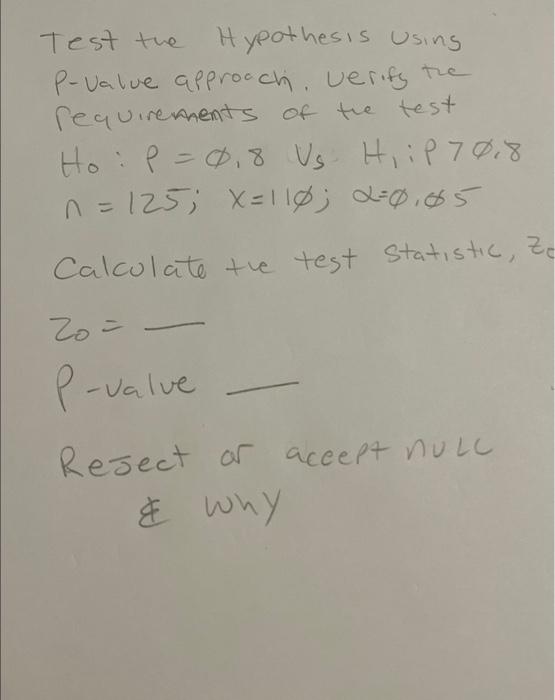 Test the Hypothesis Using
P-Value approach. Verify the
requirements of the test
H₀ : P = 0.8 Vs H₁ : P > 0.8
n = 125; X = 110; α = 0.05
Calculate the test statistic, Z₀
Z₀ = —
P-value —
Reject or accept null
& Why